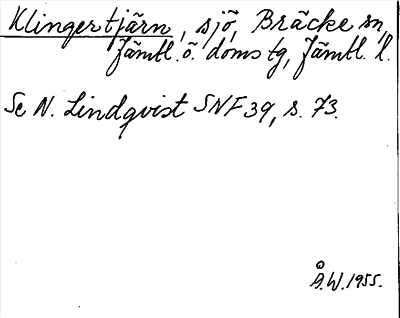 Klingertjärn, sjö, Bräcke sn,
Jämtl. ö. doms tg, Jämtl. l.
Se N. Lindqvist SNF 39, s. 73.
Å.W. 1955.